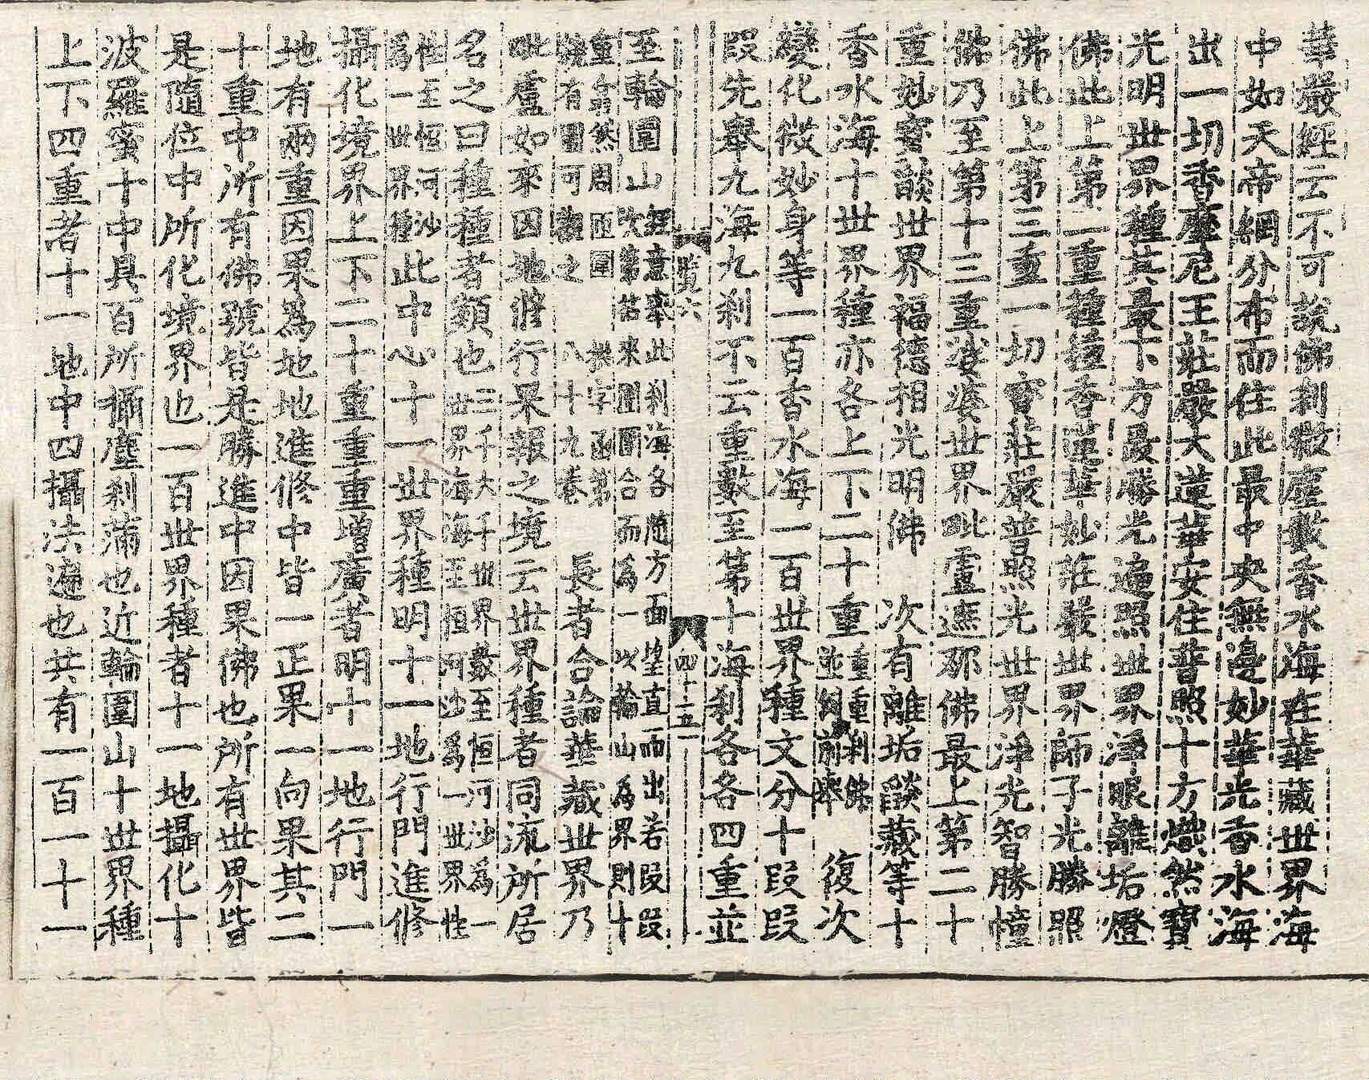 華嚴經云不可說佛刹微塵數香水海在華藏世界海
中如天帝網分布而住此最中央無邊妙華光香水海
出一切香摩尼王莊嚴大蓮華安住普照十方熾然寶
光明世界種其最下方最勝光遍照世界淨眼離垢燈
佛此上第二重種種香蓮華妙莊嚴世界師子光勝照
佛此上第三重一切寶莊嚴普照光世界淨光智勝幢
佛乃至第十三重娑婆世界毗盧遮那佛最上第二十
重妙寶𦦨世界福德相光明佛 次有離垢𦦨藏等十
香水海十世界種亦各上下二十重重重刹佛並例前舉 復次
變化微妙身等一百香水海一百世界種文分十段段
段先舉九海九刹不云重數至第十海刹各各四重並
覽六 四十五
至輪圍山經意牽此刹海各隨方面煌直而出若段段
攷第估來團圓合而為一以輪山為界則十
重翕然周匝圍 撰字函第
繞有圖可觀之 八十九卷 長者合論華藏世界乃
毗盧如來因地修行果報之境云世界種者同流所居
名之曰種種者類也三千大千世界數至恒河沙為一
世界海海至恒河沙為一世界性
性至恒河沙
為一世界種此中心十一世界種明十一地行門進修
攝化境界上下二十重重重增廣者明十一地行門一
地有兩重因果為地地進修中皆一正果一向果其二
十重中所有佛號皆是勝進中因果佛也所有世界皆
是隨位中所化境界也一百世界種者十一地攝化十
波羅蜜十中具百所攝塵刹滿也近輪圍山十世界種
上下四重者十一地中四攝法遍也共有一百一十一